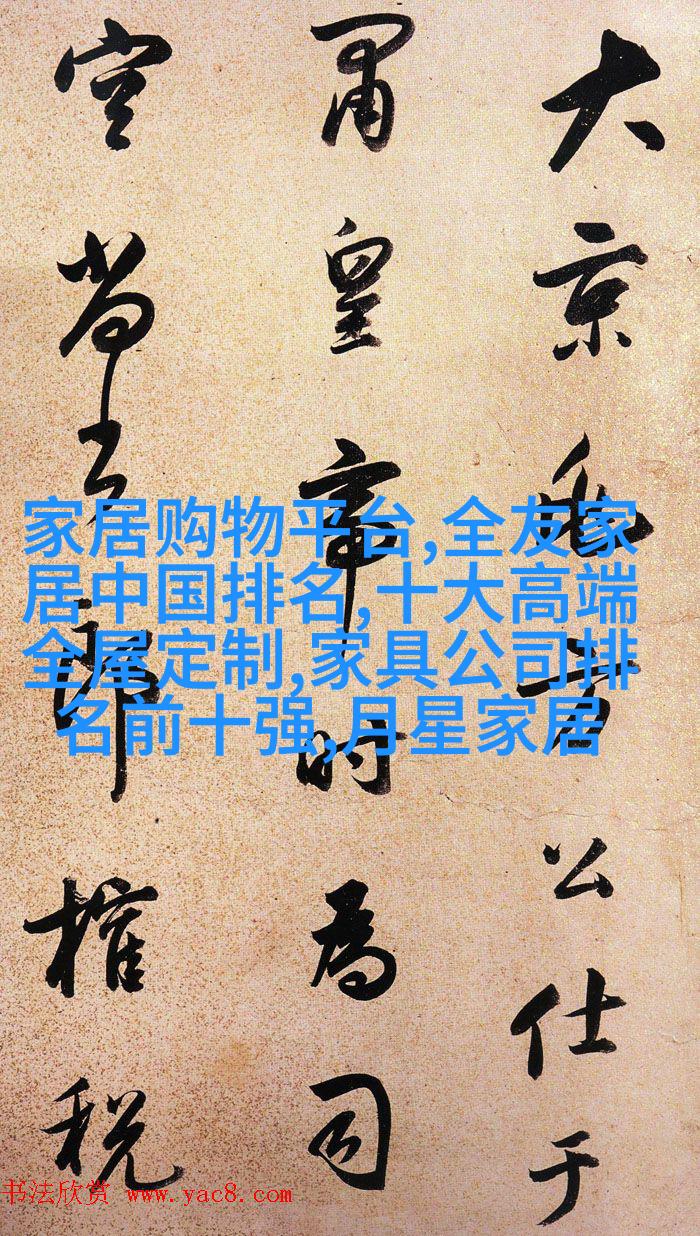 大京兆方公仕于
肅皇帝時為司
空尚書郎榷稅
家居购物平台,全友家
居中国排名,十大高端
全屋定制,家具公司排
名前十强,月星家居
书法欣赏 www.yac8.com